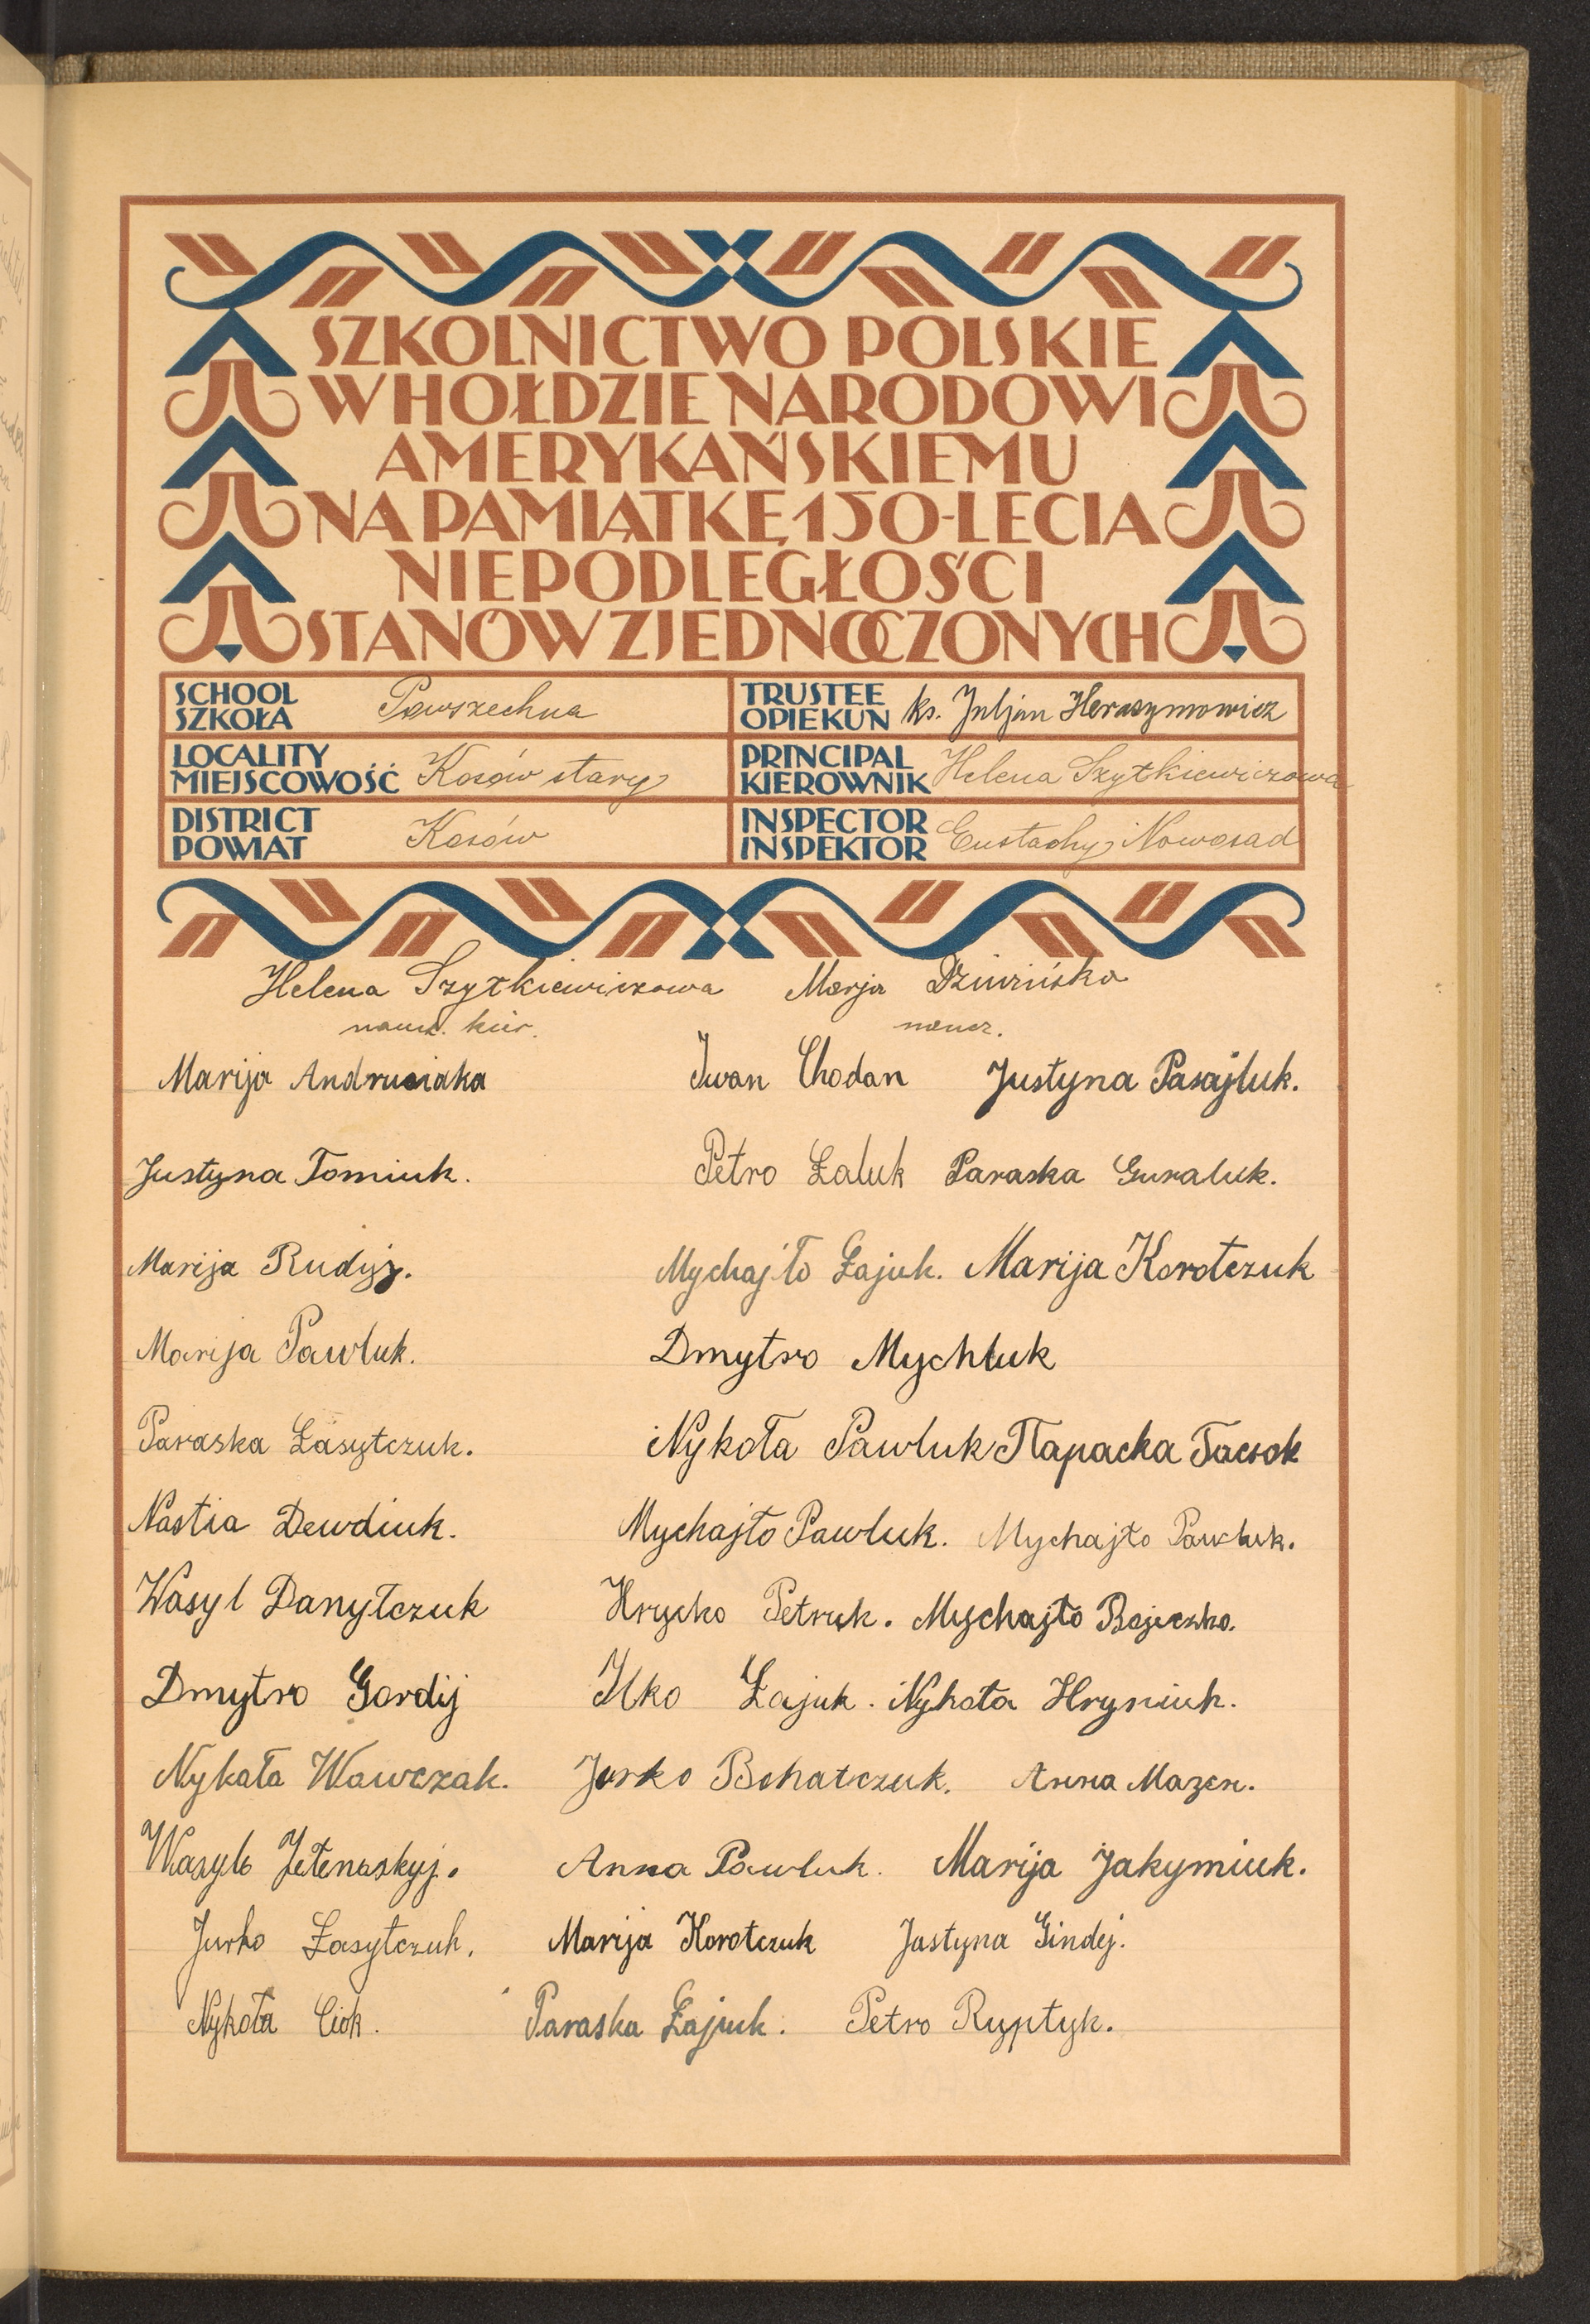 SZKOLNICTWO POLSKIE
W HOŁDZIE NARODOWI
AMERYKAŃSKIEMU
NA PAMIĄTKĘ 150-LECIA
NIEPODLEGŁOŚCI
STANÓW ZJEDNOCZONYCH
SCHOOL
SZKOŁA
Powszechna
TRUSTEE
OPIEKUN
ks. Juljan Herasymowicz
LOCALITY
MIEJSCOWOŚĆ
Kosów stary
PRINCIPAL
KIEROWNIK
Helena Szytkiewiczowa
DISTRICT
POWIAT
Kosów
INSPECTOR
INSPEKTOR
Eustachy Nowosad
Helena Szytkiewiczowa Marja
naucz. kier. naucz.
Marija Andrusiaka Iwan Chodan Justyna Pasajluk.
Justyna Tomiuk. Petro Łaluk Paraska Guraluk.
Marija Mychajło Łajuk. Marija Korotczuk
Marija Pawluk. Dmytro Mychluk
Paraska Łasytczuk. Nykoła Pawluk Параска
Nastia Dewdiuk. Mychajło Pawluk. Mychajło Pawluk.
Wasyl Danyłczuk Hrycko Petruk. Mychajło
Dmytro Gordij Ilko Łajuk. Nykoła Hryniuk.
Nykała Wawczak. Jurko Bohatczuk. Anna Mazen.
Wasyl Anna Pawluk. Marija Jakymiuk.
Jurko Łasytczuk. Marija Korotczuk Justyna Gindej.
Nykoła Ciok. Paraska Łajuk. Petro Ryptyk.